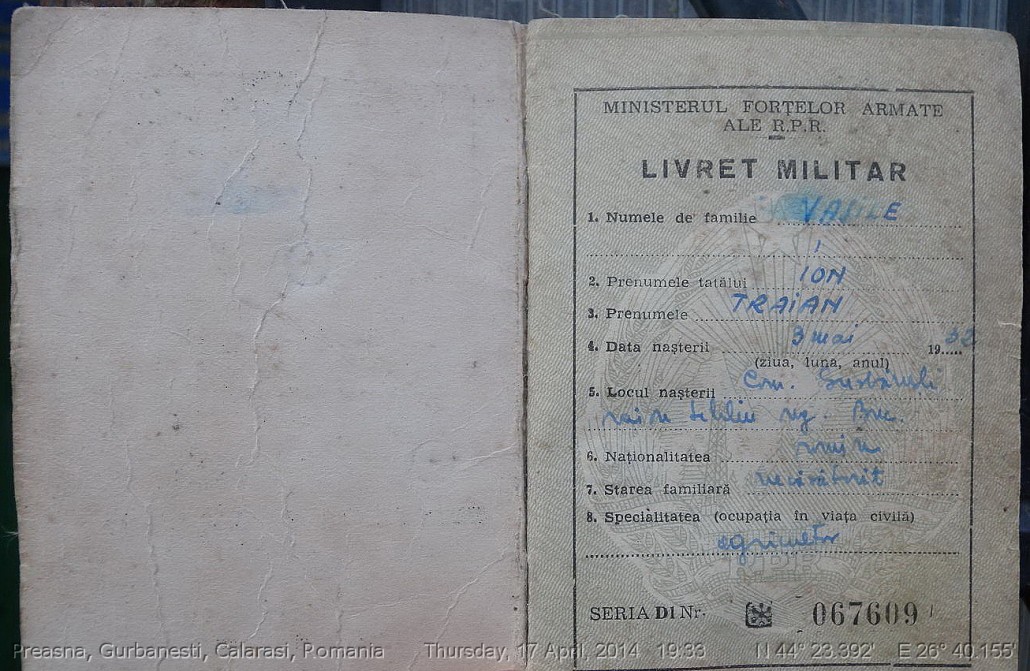 MINISTERUL FORȚELOR ARMATE
ALE R.P.R.
LIVRET MILITAR
1. Numele de familie VASILE
I
2. Prenumele tatălui ION
3. Prenumele TRAIAN
4. Data nașterii 3 mai 1932
(ziua, luna, anul)
5. Locul nașterii Com.
raion Lehliu reg. Buc.
6. Naționalitatea romîn
7. Starea familiară necăsătorit
8. Specialitatea (ocupația în viața civilă)
agricultor
SERIA D1 Nr. 067609
Preasna, Gurbanesti, Calarasi, Romania Thursday, 17 April, 2014 19:33 N 44° 23.392' E 26° 40.155'